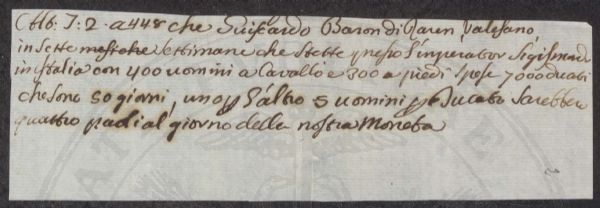 T: 2. a 448 che Guiscardo Baron di Raren Valesano,
in sette settimane che stette presso l'imperator Sigismondo
in italia con 400 uomini a Cavallo e 300 a piedi spese 7000 ducati
che sono 50 giorni, uno l'altro 5 uomini Ducato sarebbero
quattro paoli al giorno della nostra Moneta